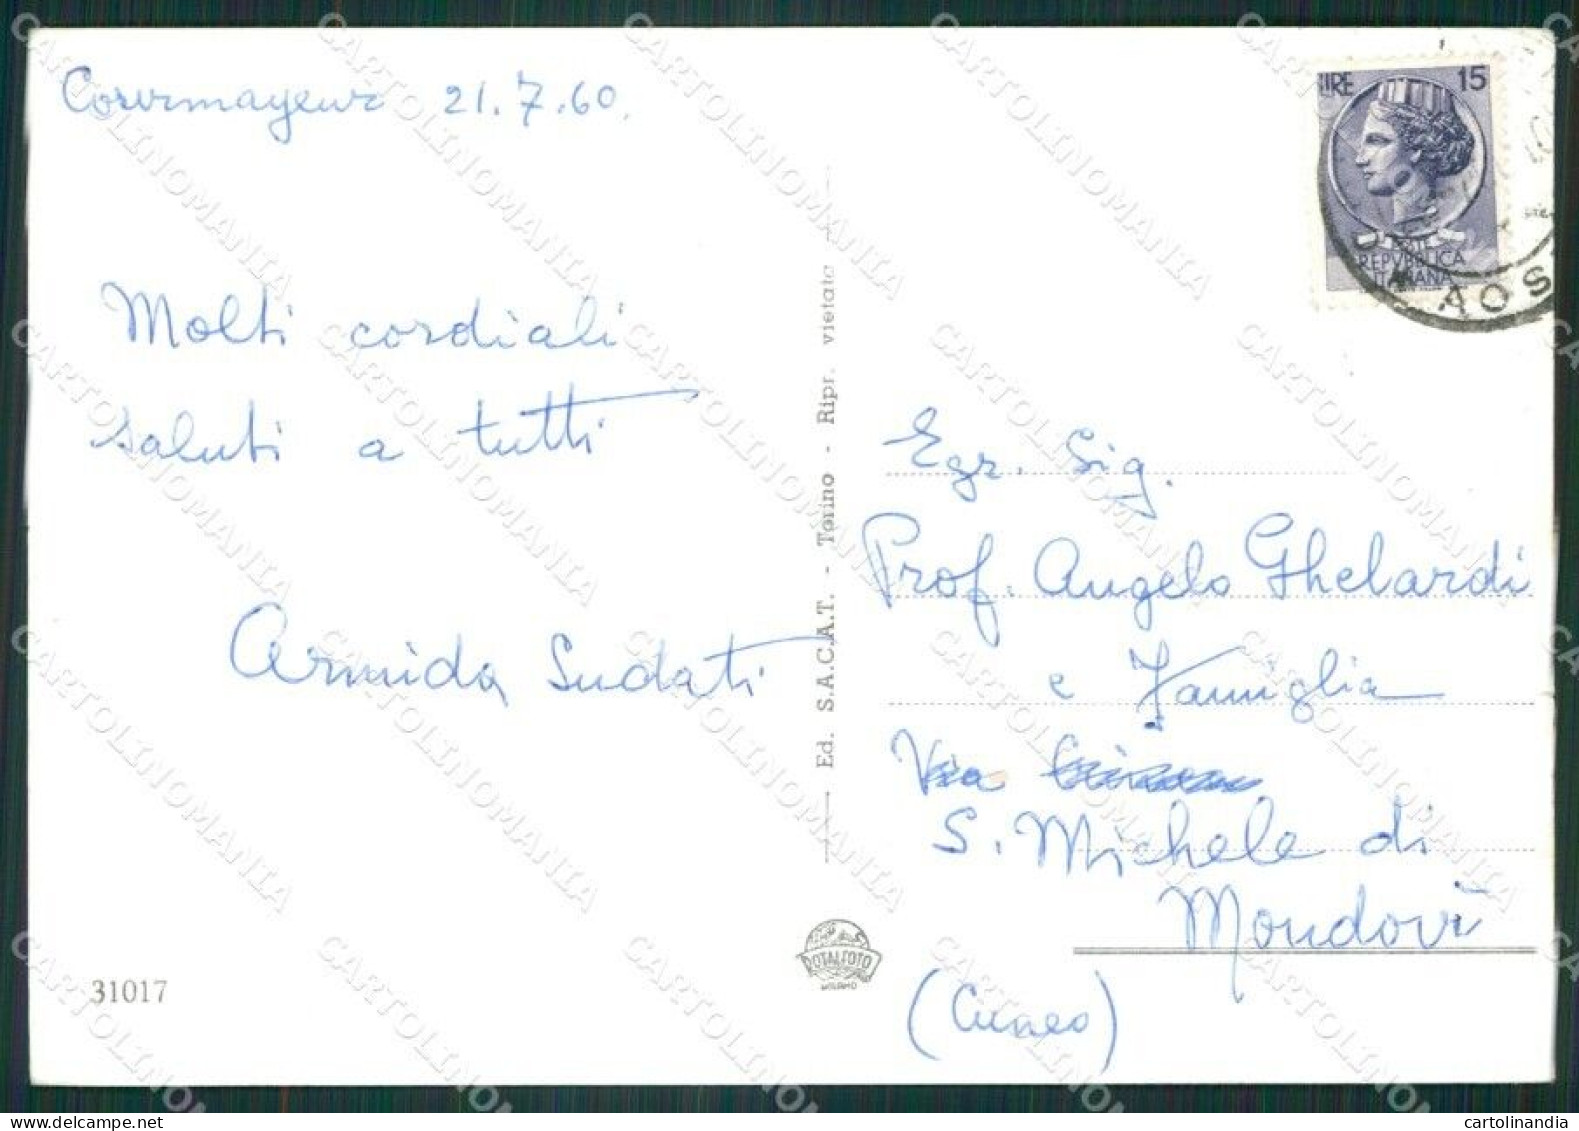 Courmayeur 21.7.60.
Molti cordiali
saluti a tutti
Armida Sudati
31017
Ed. S.A.C.A.T. - Torino - Ripr. vietata
ROTALFOTO
MILANO
LIRE 15
POSTE
REPVBBLICA
ITALIANA
AOS
Egr. Sig.
Prof. Angelo Ghelardi
e Famiglia
Via
S. Michele di
Mondovì
(Cuneo)
CARTOLINOMANIA
www.delcampe.net
cartolinandia